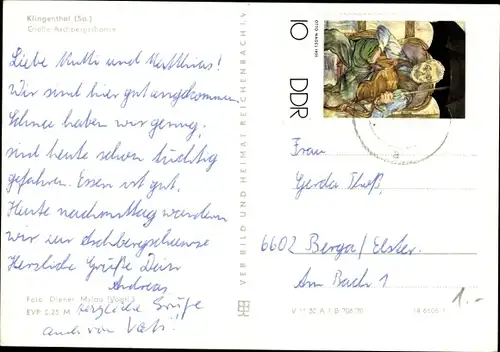 Klingenthal (Sa.)
Große Aschbergschanze
Liebe Mutti und Matthias!
Wir sind hier gut angekommen.
Schnee haben wir genug,
sind heute schon tüchtig
gefahren. Essen ist gut.
Heute nachmittag wandern
wir zur Aschbergschanze
Herzliche Grüße Dein
Andreas
herzliche Grüße
auch von Vati!
Foto: Diener, Mylau (Vogtl.)
EVP 0,25 M
VEB BILD UND HEIMAT REICHENBACH i. V.
OTTO NAGEL
10
DDR
Frau
Gerda
6602 Berga/Elster
Am Bach 1
1.-
V 11 50 A 1/B